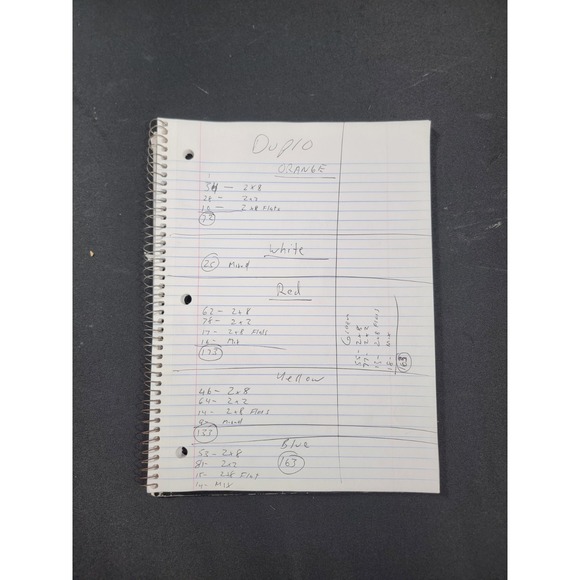 Duplo
ORANGE
34 — 2x8
28 - 2x2
10 - 2x8 Flats
72
White
25 Mixed
Red
62 - 2x8
78 - 2x2
17 - 2x8 Flats
16 - Mix
173
Yellow
46 - 2x8
64 - 2x2
14 - 2x8 Flats
Mixed
133
Blue
163
53 - 2x8
81 - 2x2
15 - 2x8 Flat
14 - Mix
Green
55 - 2x8
77 - 2x2
15 - 2x8 Flats
Mix
163